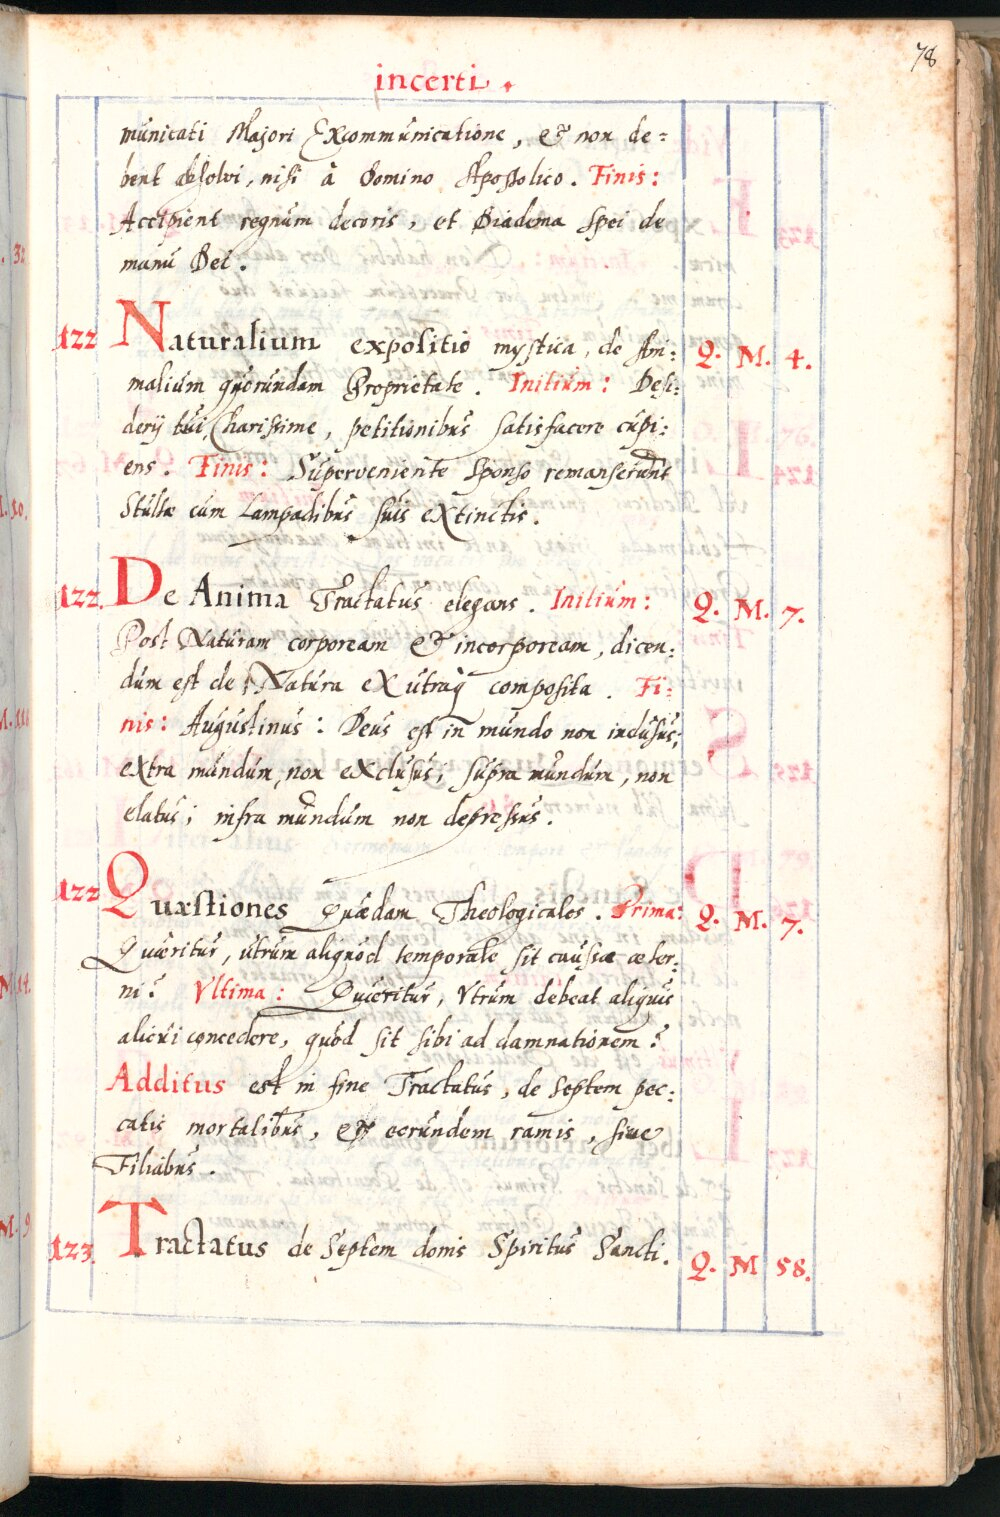 78
incerti.
municati Majori Excommunicatione, & non de=
bent absolvi, nisi à Domino Apostolico. Finis:
Accipient regnum decoris, et Diadema spei de
manu Dei.
122 Naturalium expositio mystica, de Ani: Q. M. 4.
malium quorundam Proprietate. Initium: Desi:
derij tui, Charissime, petitionibus satisfacere cupi:
ens. Finis: Superveniente Sponso remanserunt
Stultæ cum Lampadibus suis extinctis.
122. De Anima Tractatus elegans. Initium: Q. M. 7.
Post Naturam corpoream & incorpoream, dicen:
dum est de Natura ex utraq composita. Fi-
nis: Augustinus: Deus est in mundo non inclusus;
extra mundum, non exclusus; supra mundum, non
elatus; infra mundum non depressus.
122 Quæstiones Quædam Theologicales. Prima: Q. M. 7.
Quæritur, utrum aliquod temporale sit causa æter:
ni? Ultima: Quæritur, Utrum debeat aliquis
alicui concedere, quod sit sibi ad damnationem?
Additus est in fine Tractatus, de septem pec:
catis mortalibus, & eorundem ramis, sive
Filiabus.
123. Tractatus de Septem donis Spiritus Sancti. Q. M 58.